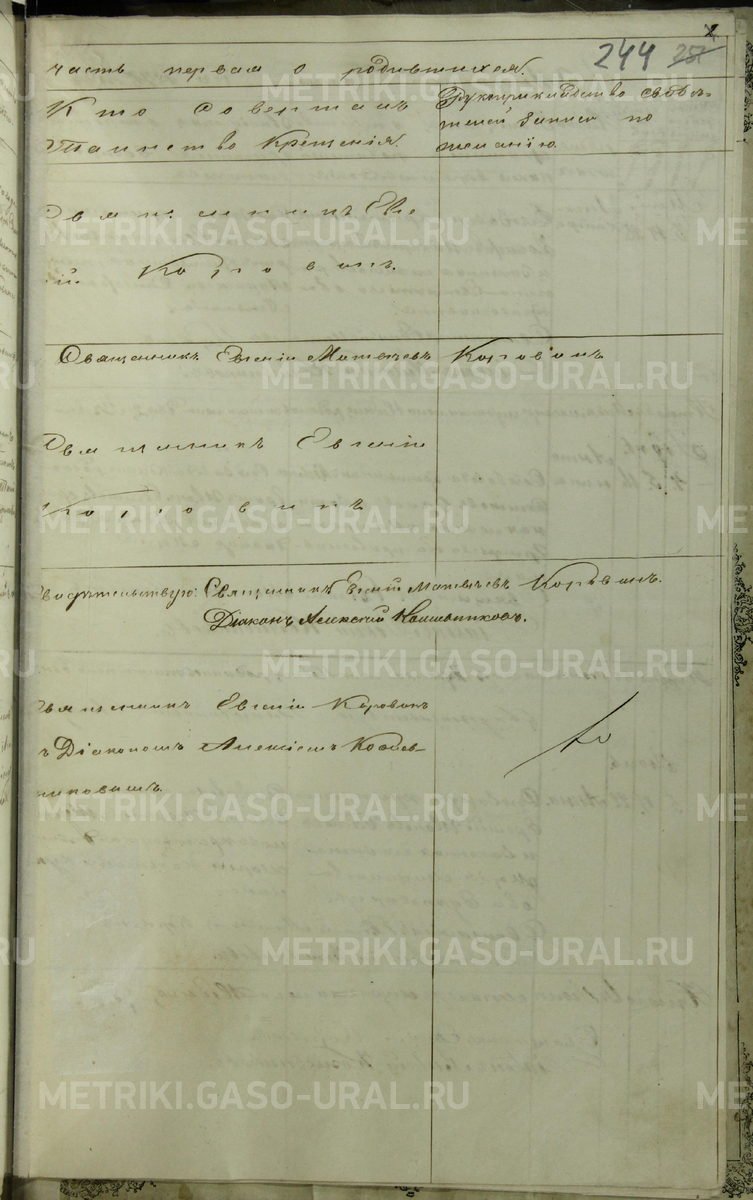 244
часть первая о родившихся.
Кто совершалъ Таинство Крещенія.
Рукоприкладство свидѣтелей записи по желанію.
Священникъ Евгеній Коровинъ.
Священникъ Евгеній Матвѣевъ Коровинъ
Священникъ Евгеній
Коровинъ
Священникъ Евгеній Матвѣевъ Коровинъ.
Діаконъ Алексій
Священникъ Евгеній Коровинъ
ъ Діакономъ Алексіемъ
METRIKI.GASO-URAL.RU